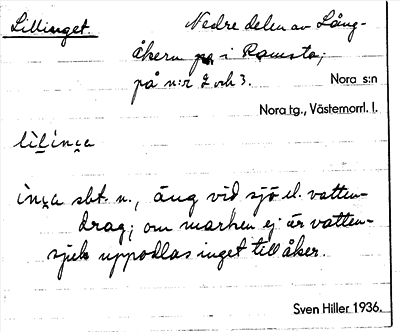 Lillinget.
Nedre delen av Lång-
åkern på i Ramsta;
på n:r 2 och 3.
Nora s:n
Nora tg., Västernorrl. l.
lìlinʒa
inʒa sbt. n., äng vid sjö el. vatten-
drag; om marken ej är vatten-
sjuk uppodlas inget till åker.
Sven Hiller 1936.